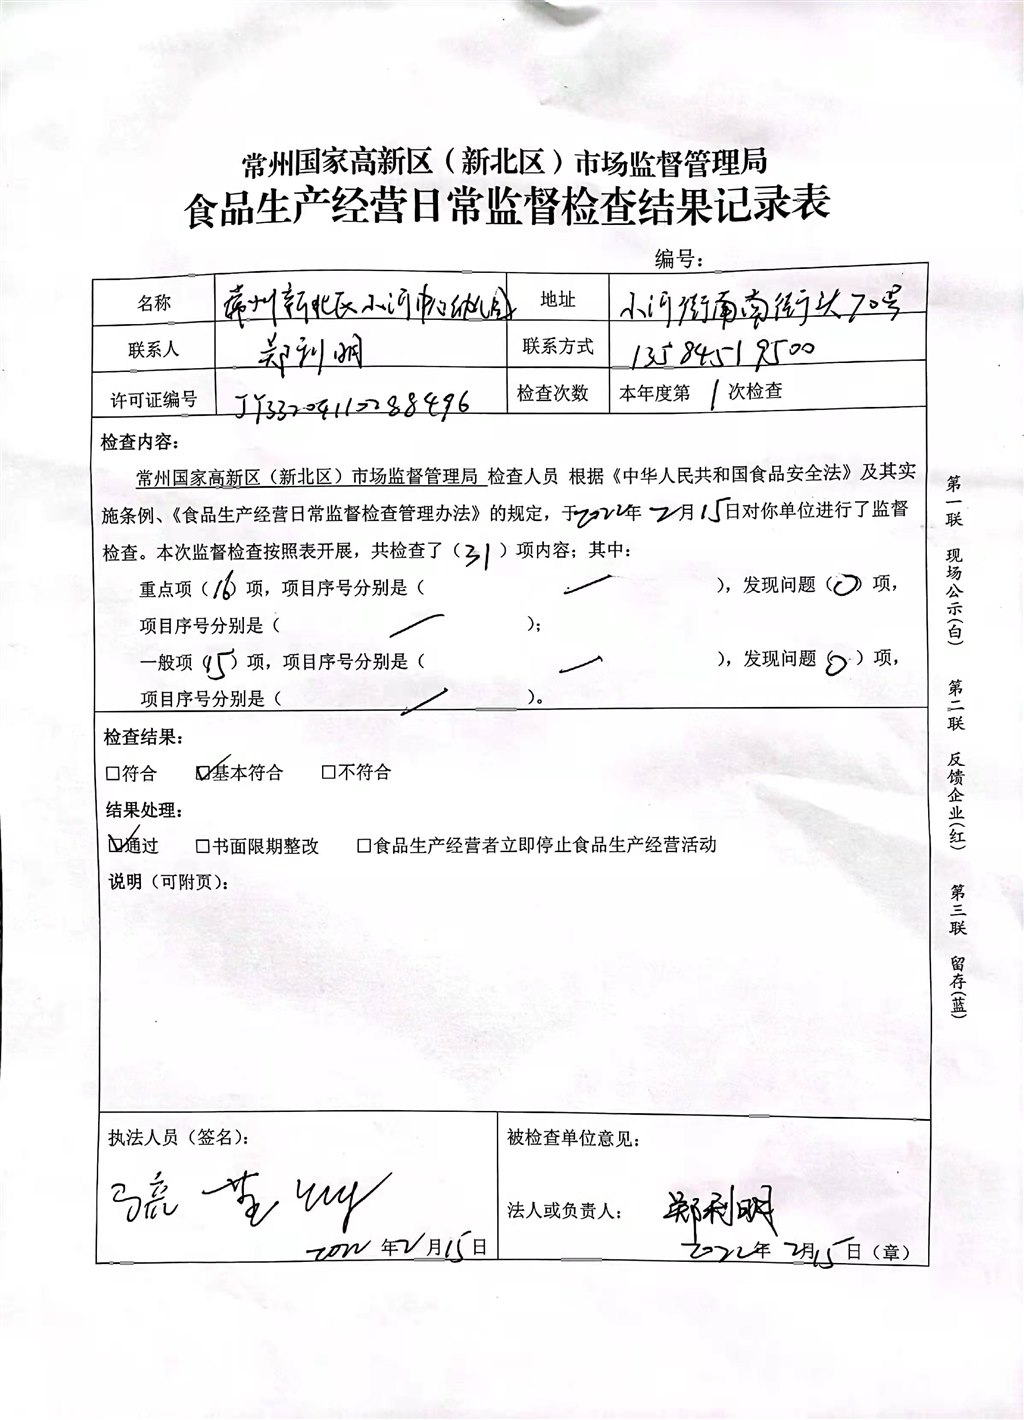 常州国家高新区（新北区）市场监督管理局
食品生产经营日常监督检查结果记录表
编号：
名称 常州新北区小河中心幼儿园 地址 小河街南南街头70号
联系人 郑利明 联系方式 13584519500
许可证编号 JY33204110288496 检查次数 本年度第1次检查
检查内容：
常州国家高新区（新北区）市场监督管理局 检查人员 根据《中华人民共和国食品安全法》及其实
施条例、《食品生产经营日常监督检查管理办法》的规定，于2022年2月15日对你单位进行了监督
检查。本次监督检查按照表开展，共检查了（31）项内容；其中：
重点项（16）项，项目序号分别是（ ／ ），发现问题（0）项，
项目序号分别是（ ／ ）；
一般项（15）项，项目序号分别是（ ／ ），发现问题（0）项，
项目序号分别是（ ／ ）。
检查结果：
□符合 ☑基本符合 □不符合
结果处理：
☑通过 □书面限期整改 □食品生产经营者立即停止食品生产经营活动
说明（可附页）：
执法人员（签名）：
2022年2月15日
被检查单位意见：
法人或负责人： 郑利明
2022年2月15日（章）
第一联 现场公示（白） 第二联 反馈企业（红） 第三联 留存（蓝）